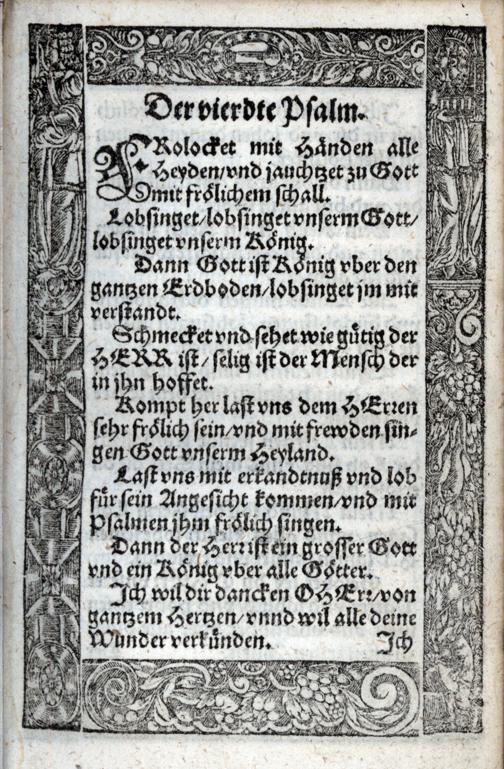 Der vierdte Psalm.
FRolocket mit Händen alle
Heyden/vnd jauchtzet zu Gott
mit frölichem schall.
Lobsinget/lobsinget vnserm Gott/
lobsinget vnserm König.
Dann Gott ist König vber den
gantzen Erdboden/lobsinget jm mit
verstandt.
Schmecket vnd sehet wie gütig der
HERR ist/ selig ist der Mensch der
in jhn hoffet.
Kompt her last vns dem HErren
sehr frölich sein/vnd mit frewden sin-
gen Gott vnserm Heyland.
Last vns mit erkandtnuß vnd lob
für sein Angesicht kommen/vnd mit
Psalmen jhm frölich singen.
Dann der Herr ist ein grosser Gott
vnd ein König vber alle Götter.
Ich wil dir dancken O HErr/von
gantzem Hertzen/vnnd wil alle deine
Wunder verkünden. Ich